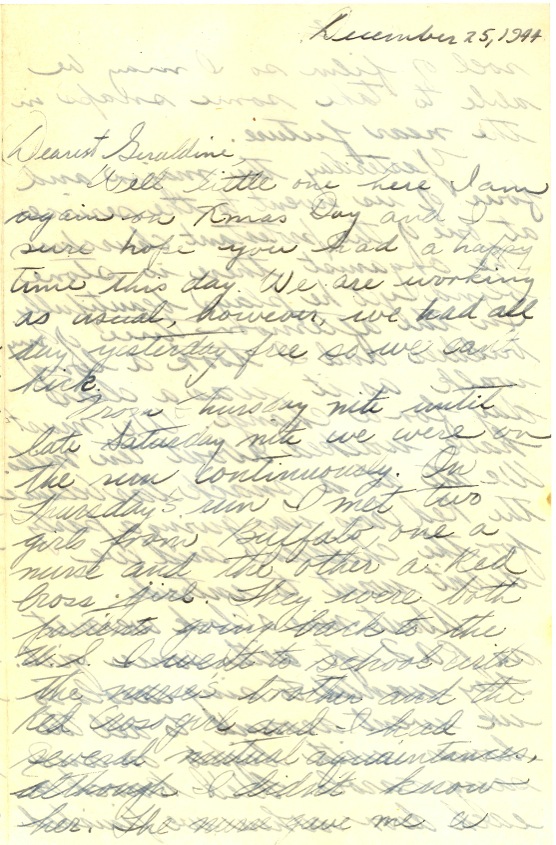 December 25, 1944
Dearest Geraldine,
Well little one here I am
again on Xmas Day and I
sure hope you had a happy
time this day. We are working
as usual, however, we had all
day yesterday free so we cant
kick.
From Thursday nite until
late Saturday nite we were on
the run continuously. In
Thursday's run I met two
girls from Buffalo one a
nurse and the other a Red
Cross girl. They were both
patients going back to the
U.S. I went to school with
the nurse's brother and the
red cross girl and I had
several mutual aquaintances,
although I didn't know
her. The nurse gave me a